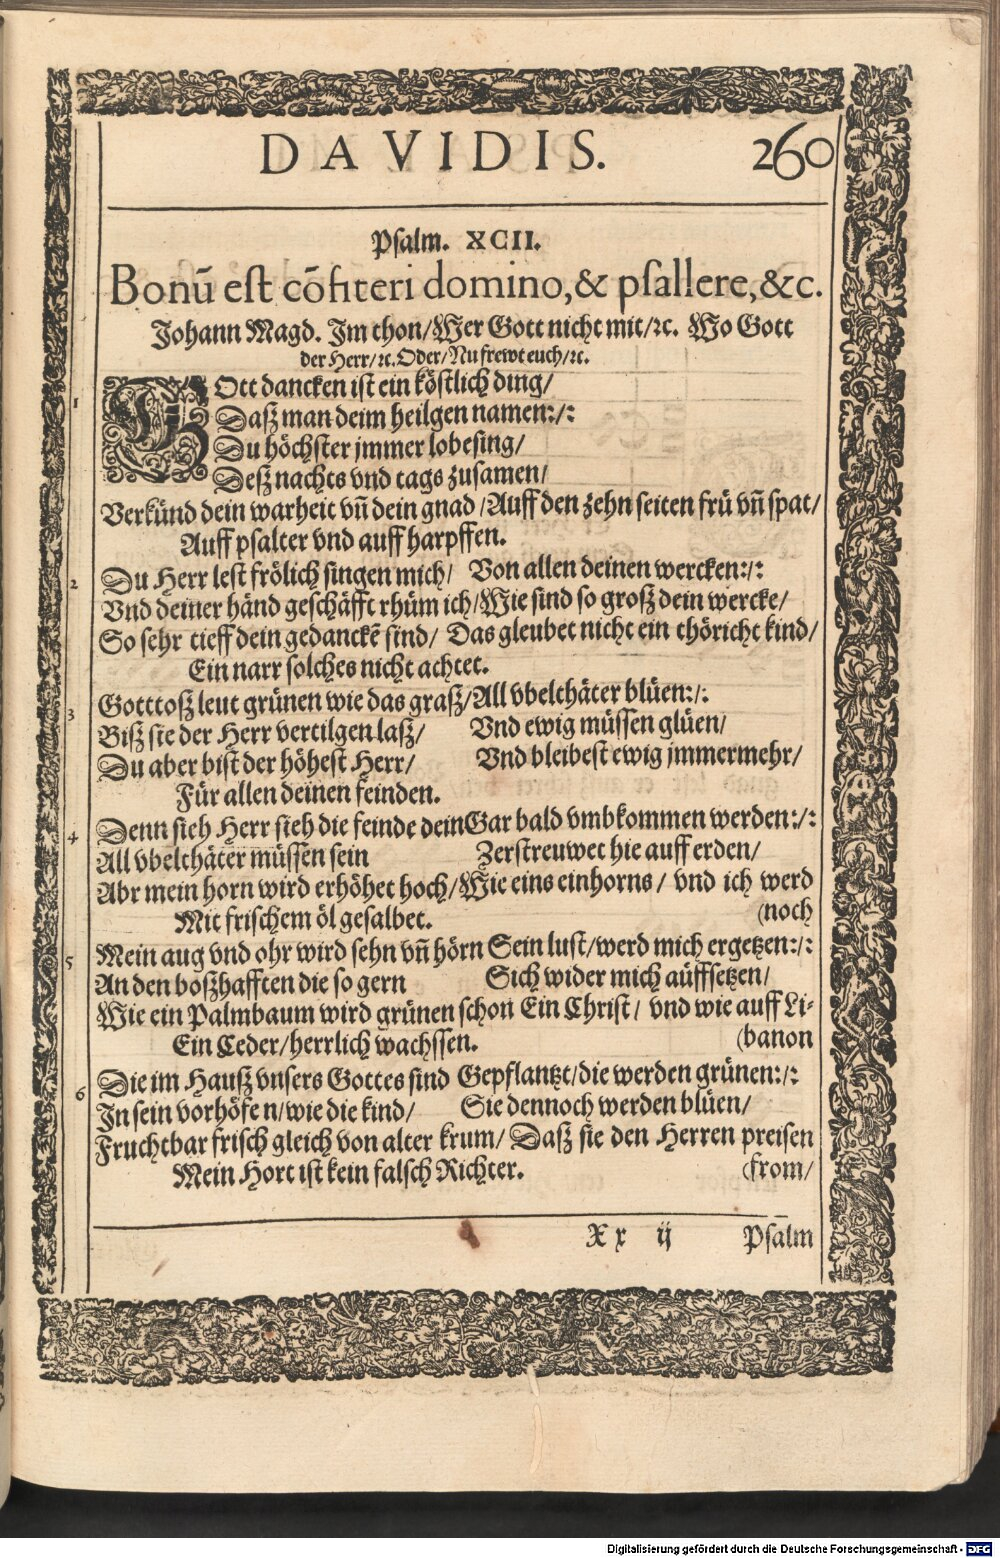 DAVIDIS. 260
Psalm. XCII.
Bonū est cōfiteri domino, & psallere, &c.
Johann Magd. Im thon/Wer Gott nicht mit/ꝛc. Wo Gott
der Herr/ꝛc. Oder/Nu frewt euch/ꝛc.
1 GOtt dancken ist ein köstlich ding/
Dasz man deim heilgen namen:/:
Du höchster jmmer lobesing/
Desz nachts vnd tags zusamen/
Verkünd dein warheit vñ dein gnad/Auff den zehn seiten frü vñ spat/
Auff psalter vnd auff harpffen.
2 Du Herr lest frölich singen mich/ Von allen deinen wercken:/:
Vnd deiner händ geschäfft rhüm ich/Wie sind so grosz dein wercke/
So sehr tieff dein gedanckē sind/ Das gleubet nicht ein thöricht kind/
Ein narr solches nicht achtet.
3 Gotttosz leut grünen wie das grasz/All vbelthäter blüen:/:
Bisz sie der Herr vertilgen lasz/ Vnd ewig müssen glüen/
Du aber bist der höhest Herr/ Vnd bleibest ewig jmmermehr/
Für allen deinen feinden.
4 Denn sieh Herr sieh die feinde dein Gar bald vmbkommen werden:/:
All vbelthäter müssen sein Zerstreuwet hie auff erden/
Abr mein horn wird erhöhet hoch/Wie eins einhorns/ vnd ich werd
Mit frischem öl gesalbet. (noch
5 Mein aug vnd ohr wird sehn vñ hörn Sein lust/werd mich ergetzen:/:
An den boszhafften die so gern Sich wider mich auffsetzen/
Wie ein Palmbaum wird grünen schon Ein Christ/ vnd wie auff Li-
Ein Ceder/herrlich wachssen. (banon
6 Die im Hausz vnsers Gottes sind Gepflantzt/die werden grünen:/:
In sein vorhöfe n/wie die kind/ Sie dennoch werden blüen/
Fruchtbar frisch gleich von alter krum/ Dasz sie den Herren preisen
Mein Hort ist kein falsch Richter. (from/
Xx ij Psalm
Digitalisierung gefördert durch die Deutsche Forschungsgemeinschaft - DFG